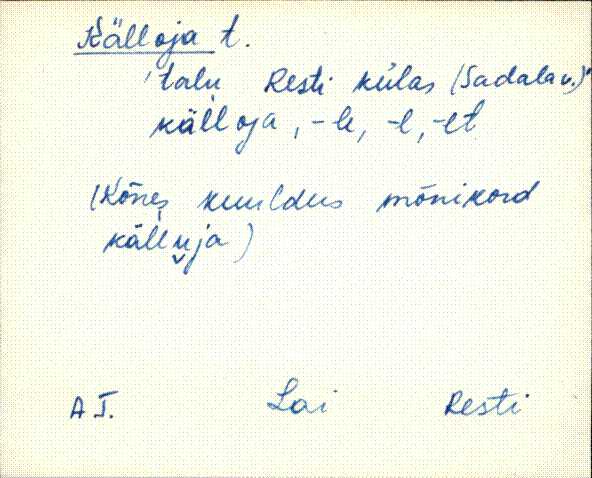 Källoja t.
'talu Resti külas (Sadala v.)'
källoja, -le, -l, -lt
(Kõnes kuuldus mõnikord
källuja)
A J. Lai Resti